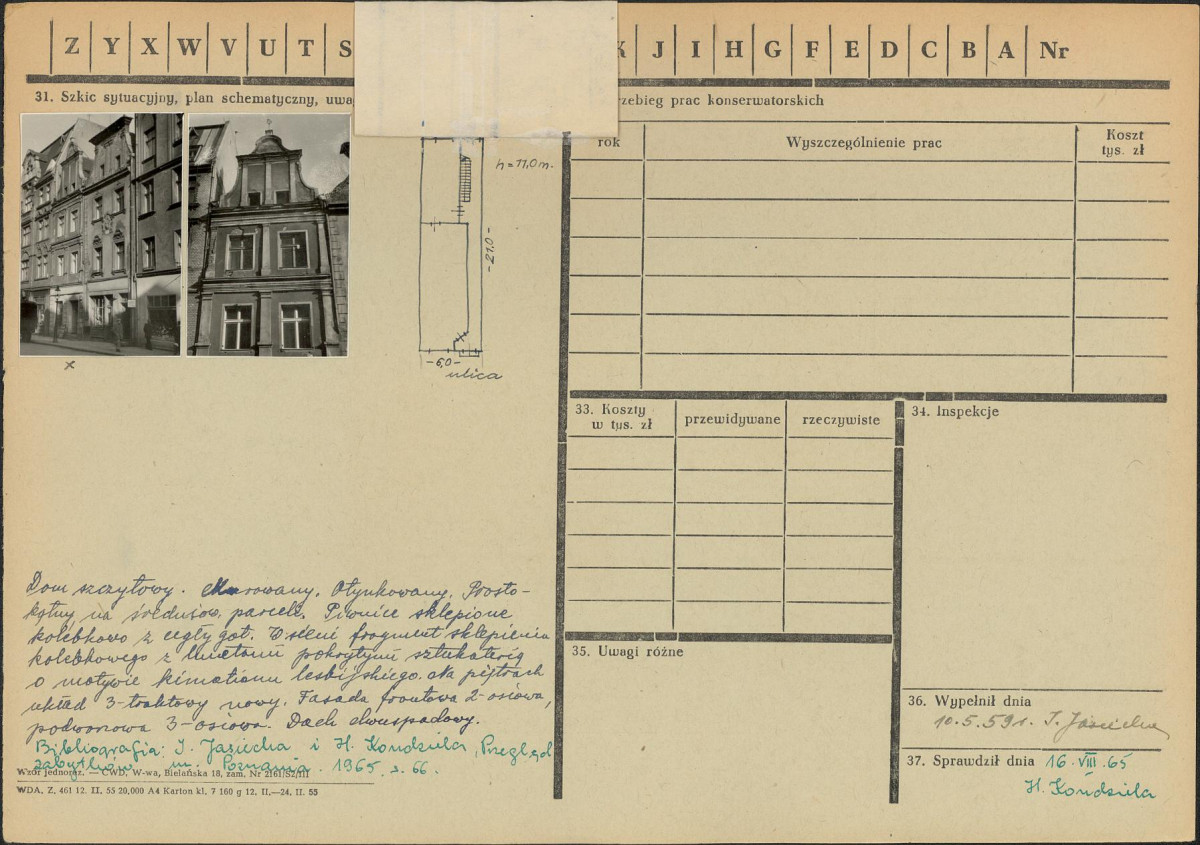 Z Y X W V U T S K J I H G F E D C B A Nr
31. Szkic sytuacyjny, plan schematyczny, uwa
rzebieg prac konserwatorskich
rok
Wyszczególnienie prac
Koszt
tys. zł
h=11,0m.
-21.0-
-6,0-
ulica
x
33. Koszty
w tys. zł
przewidywane
rzeczywiste
34. Inspekcje
35. Uwagi różne
Dom szczytowy. Murowany. Otynkowany. Prosto-
kątny na średniow. parceli. Piwnice sklepione
kolebkowo z cegły got. W sieni fragment sklepienia
kolebkowego z lunetami pokrytymi sztukaterią
o motywie kimationu lesbijskiego. Na piętrach
układ 3-traktowy nowy. Fasada frontowa 2-osiowa,
podworzowa 3-osiowa. Dach dwuspadowy.
Bibliografia: I. Jasiecka i H. Kondziela, Przegląd
zabytków m. Poznania. 1965, s. 66.
Wzór jednoraz. — CWD, W-wa, Bielańska 18, zam. Nr 2161/S2/III
WDA. Z. 461 12. II. 55 20.000 A4 Karton kl. 7 160 g 12. II.—24. II. 55
36. Wypełnił dnia
10.5.59r. I. Jasiecka
37. Sprawdził dnia 16.VIII.65
H. Kondziela